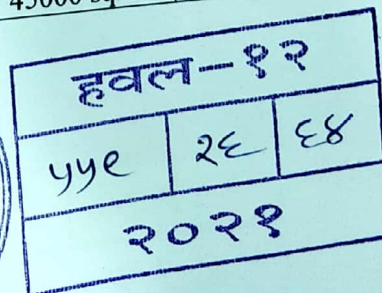 हवल-१२
५५९ २६ ६४
२०२१